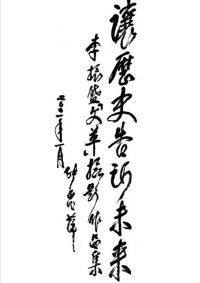 讓歷史告訴未来
李振盛「文革」攝影作品集
二〇〇一年一月